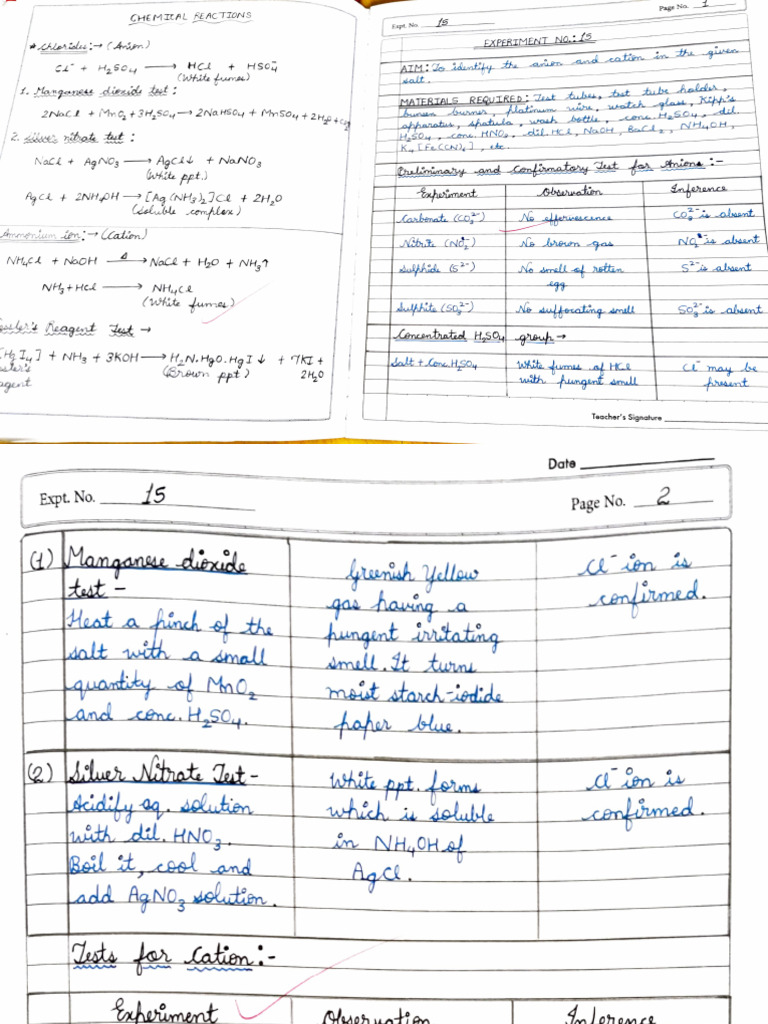 CHEMICAL REACTIONS
* Chlorides:→ (Anion)
Cl⁻ + H₂SO₄ ⟶ HCl + HSO₄⁻
(White fumes)
1. Manganese dioxide test:
2NaCl + MnO₂ + 3H₂SO₄ ⟶ 2NaHSO₄ + MnSO₄ + 2H₂O + Cl₂
2. Silver nitrate test:
NaCl + AgNO₃ ⟶ AgCl↓ + NaNO₃
(White ppt.)
AgCl + 2NH₄OH ⟶ [Ag(NH₃)₂]Cl + 2H₂O
(Soluble complex)
Ammonium ion:→ (Cation)
NH₄Cl + NaOH —Δ→ NaCl + H₂O + NH₃↑
NH₃ + HCl ⟶ NH₄Cl
(White fumes)
Reagent Test →
+ NH₃ + 3KOH ⟶ H₂N.HgO.HgI↓ + 7KI +
(Brown ppt) 2H₂O
Expt. No. 15
Page No. 1
EXPERIMENT NO.: 15
AIM: To identify the anion and cation in the given
salt.
MATERIALS REQUIRED: Test tubes, test tube holder,
bunsen burner, platinum wire, watch glass, Kipp's
apparatus, spatula, wash bottle, conc. H₂SO₄, dil.
H₂SO₄, conc. HNO₃, dil. HCl, NaOH, BaCl₂, NH₄OH,
K₄[Fe(CN)₆], etc.
Preliminary and Confirmatory Test for Anions:-
Experiment Observation Inference
Carbonate (CO₃²⁻) No effervescence CO₃²⁻ is absent
Nitrite (NO₂⁻) No brown gas NO₂⁻ is absent
Sulphide (S²⁻) No smell of rotten S²⁻ is absent
egg
Sulphite (SO₃²⁻) No suffocating smell SO₃²⁻ is absent
Concentrated H₂SO₄ group→
Salt + Conc. H₂SO₄ White fumes of HCl Cl⁻ may be
with pungent smell present
Teacher's Signature
Date
Expt. No. 15
Page No. 2
(1) Manganese dioxide
test –
Heat a pinch of the
salt with a small
quantity of MnO₂
and conc. H₂SO₄.
Greenish Yellow
gas having a
pungent irritating
smell. It turns
moist starch-iodide
paper blue.
Cl⁻ ion is
confirmed.
(2) Silver Nitrate Test-
Acidify aq. solution
with dil. HNO₃.
Boil it, cool and
add AgNO₃ solution.
White ppt. forms
which is soluble
in NH₄OH of
AgCl.
Cl⁻ ion is
confirmed.
Tests for Cation:-
Experiment Observation Inference